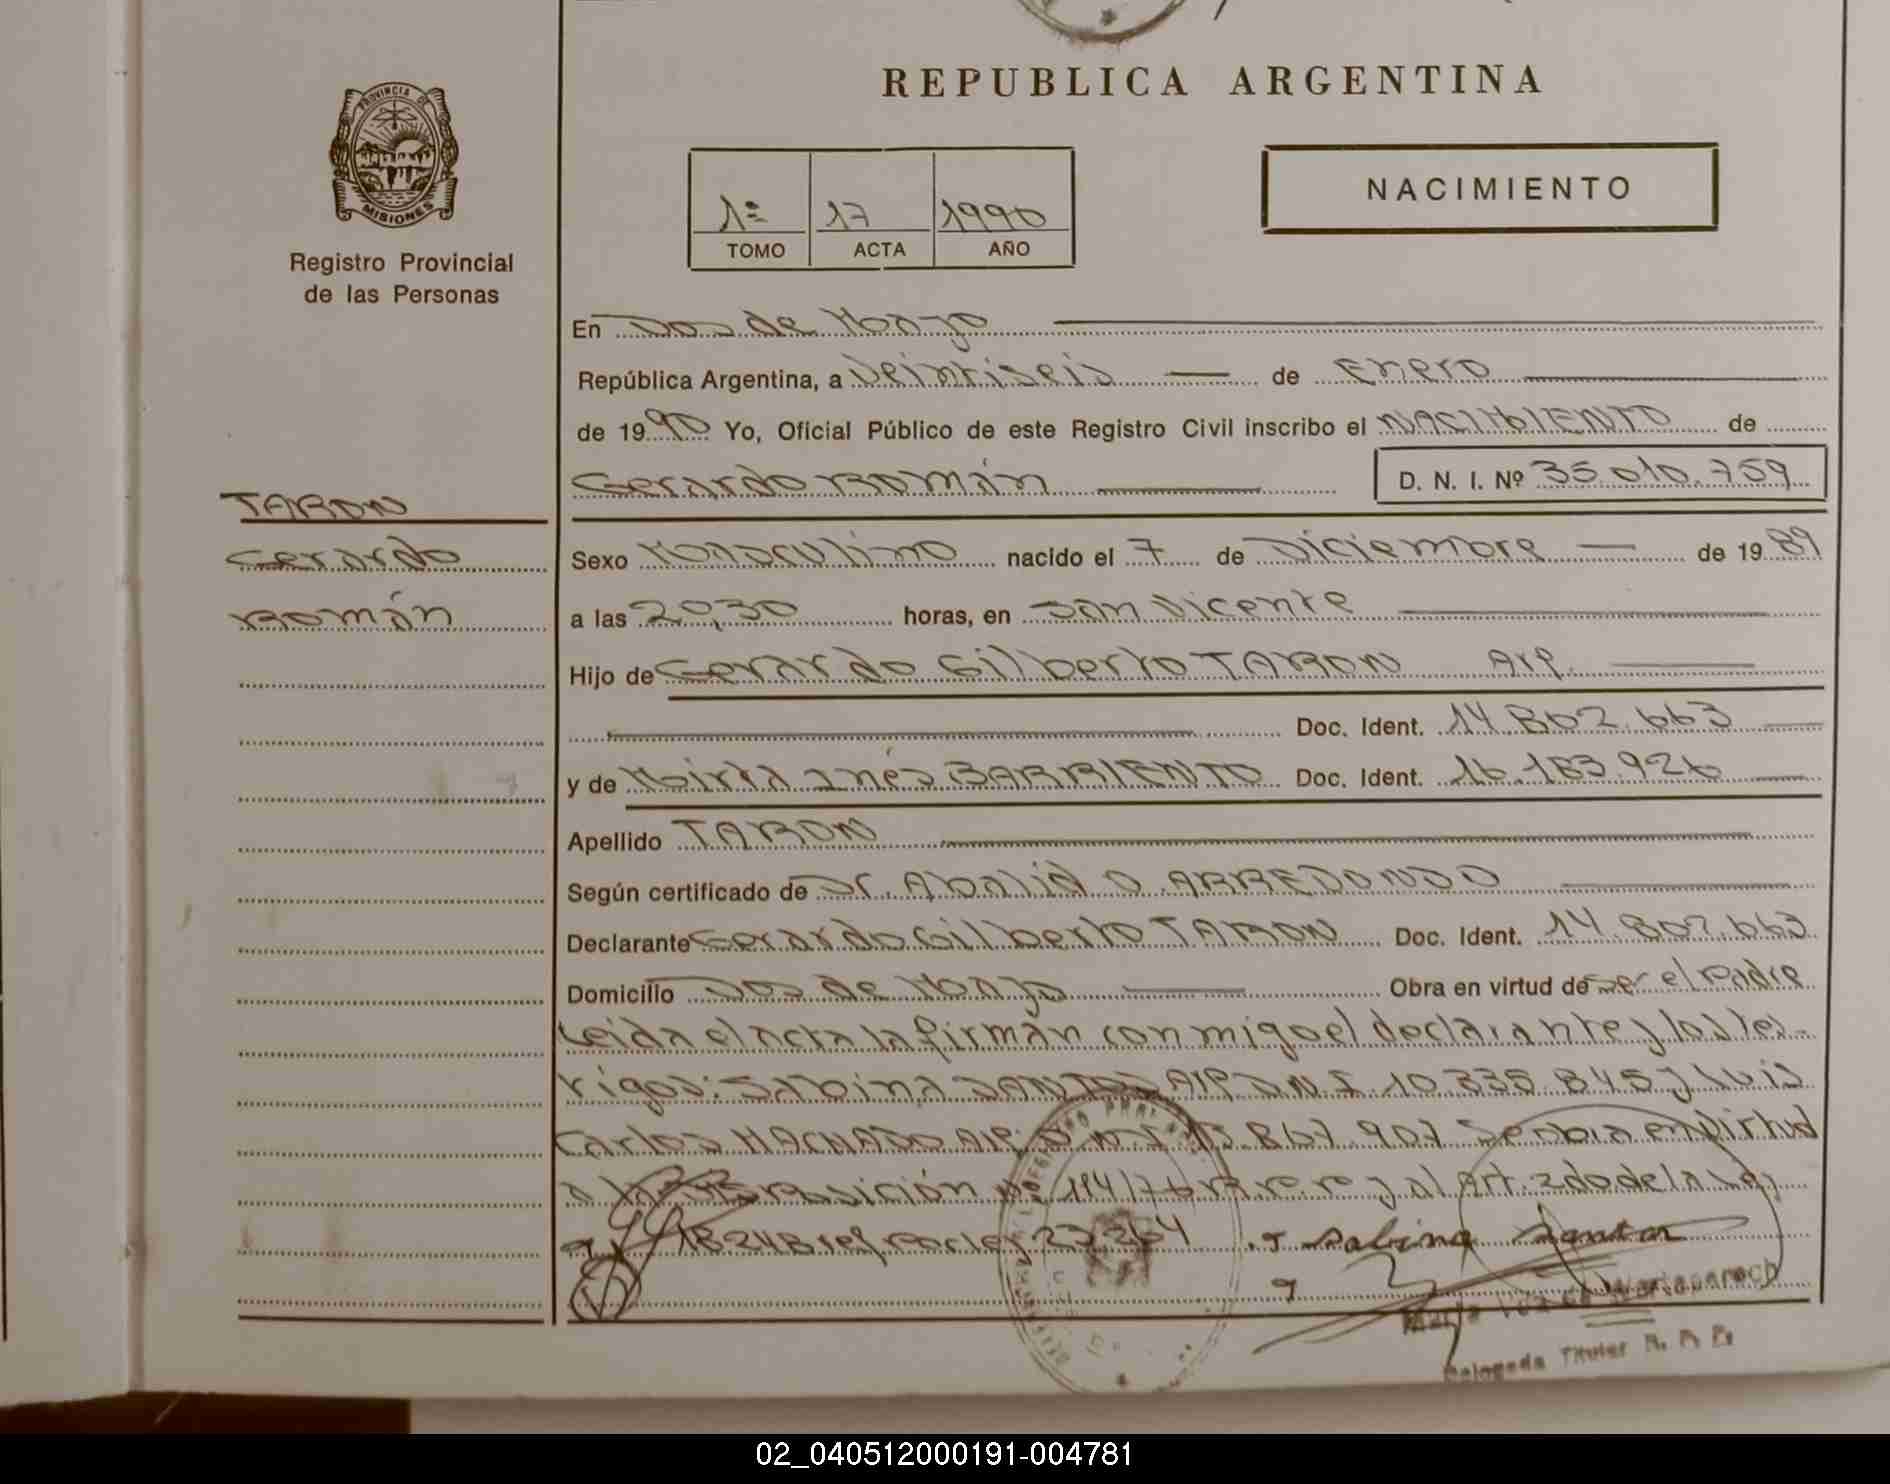 PROVINCIA DE
MISIONES
Registro Provincial
de las Personas
REPUBLICA ARGENTINA
NACIMIENTO
1º 17 1990
TOMO ACTA AÑO
En Dos de Mayo
República Argentina, a Veintiseis de Enero
de 1990 Yo, Oficial Público de este Registro Civil inscribo el NACIMIENTO de
Gerardo Román D. N. I. Nº 35.010.759
TARON
Gerardo
Román
Sexo Masculino nacido el 7 de Diciembre de 1989
a las 20,30 horas, en San Vicente
Hijo de Gerardo Gilberto TARON Arg.
Doc. Ident. 14.802.663
y de Mirta Inés BARRIENTO Doc. Ident. 16.183.926
Apellido TARON
Según certificado de Dr. O ARREDONDO
Declarante Gerardo Gilberto TARON Doc. Ident. 14.802.663
Domicilio Dos de Mayo Obra en virtud de ser el Padre
Leida el acta la firman conmigo el declarante y los tes-
tigos: Sabina SANTOS Arg. D.N.I. 10.335.845 y Luis
Carlos MACHADO Arg. D.N.I. 867.907 Se en virtud
a la Disposición Nº 114/76 y al Art. 2do de la Ley
18248 ref por ley 23264
Sabina Santos
Delegada Titular R. P. P.
02_040512000191-004781